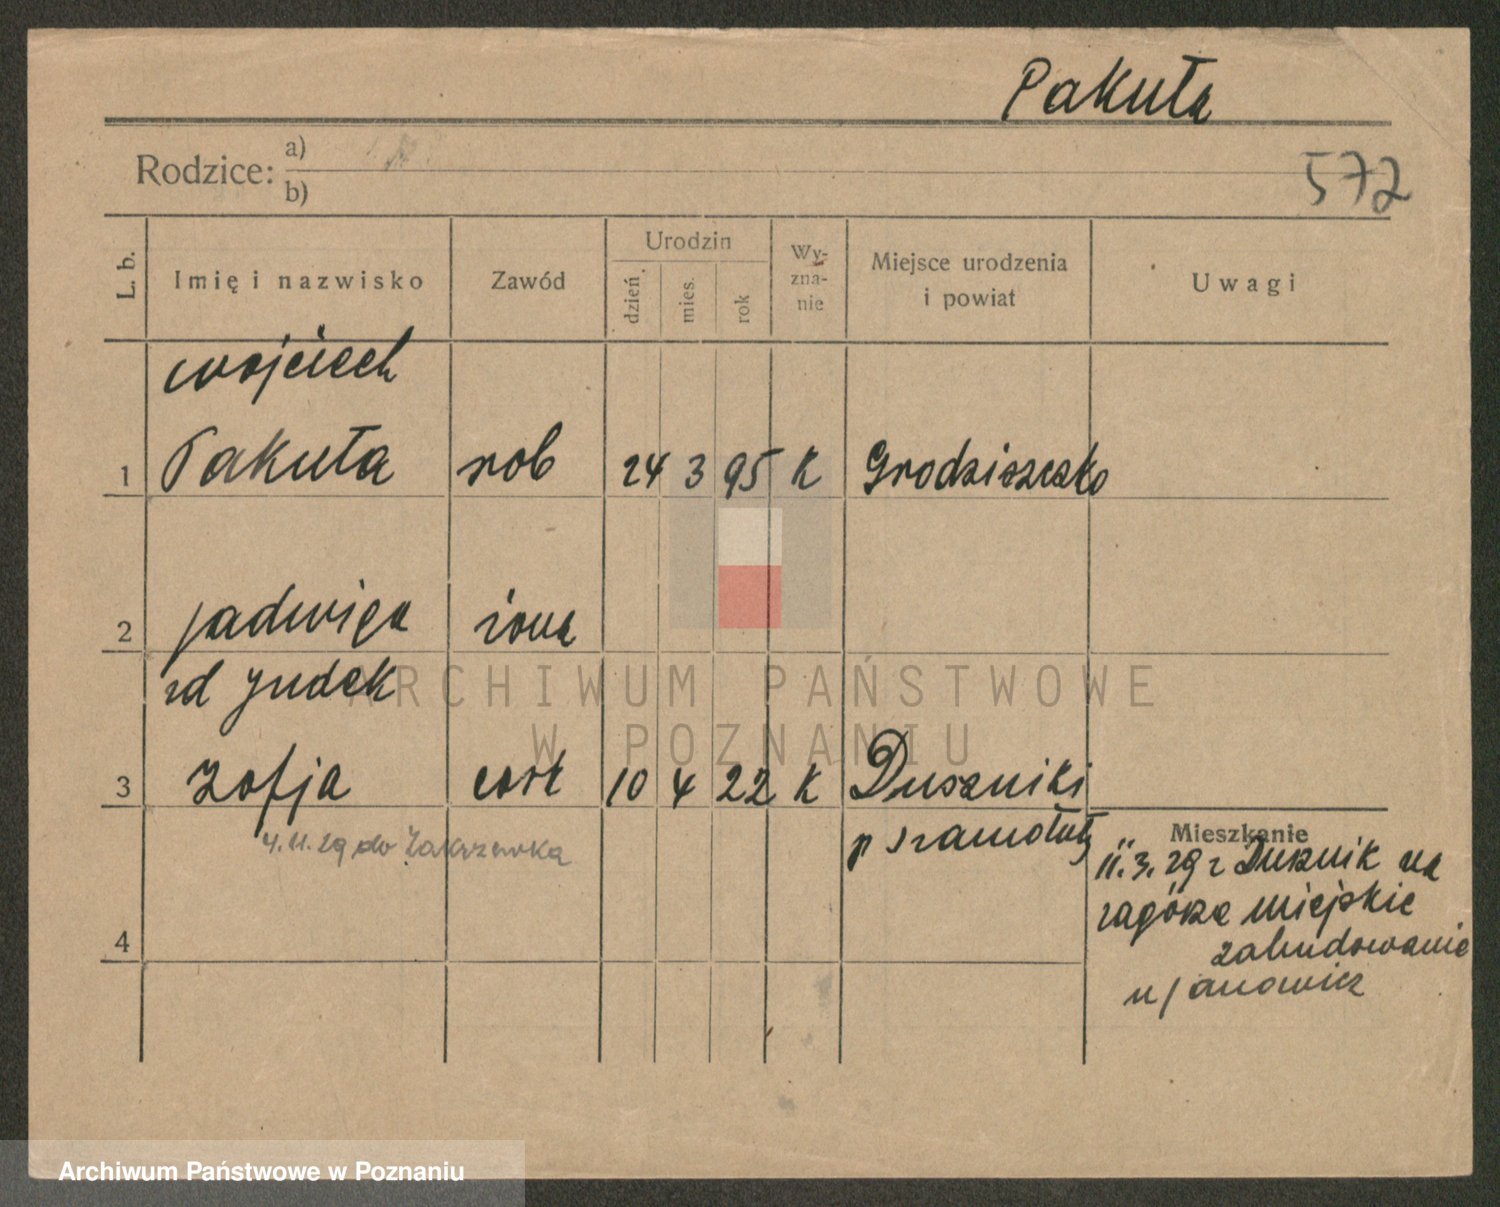 Pakuła
572
Rodzice: a)
b)
L. b. Imię i nazwisko Zawód Urodzin dzień mies. rok Wy-zna-nie Miejsce urodzenia i powiat Uwagi
Wojciech
1 Pakuła rob 24 3 95 K Grodziszczko
2 Jadwiga żona
zd Judek
3 Zofja cork 10 4 22 K Duszniki
p Szamotuły
4.11.29 do Zakrzewka
4
Mieszkanie
11.3.29 z Dusznik na
zagórze miejskie
zabudowanie
u Janowicz
ARCHIWUM PAŃSTWOWE
W POZNANIU
Archiwum Państwowe w Poznaniu